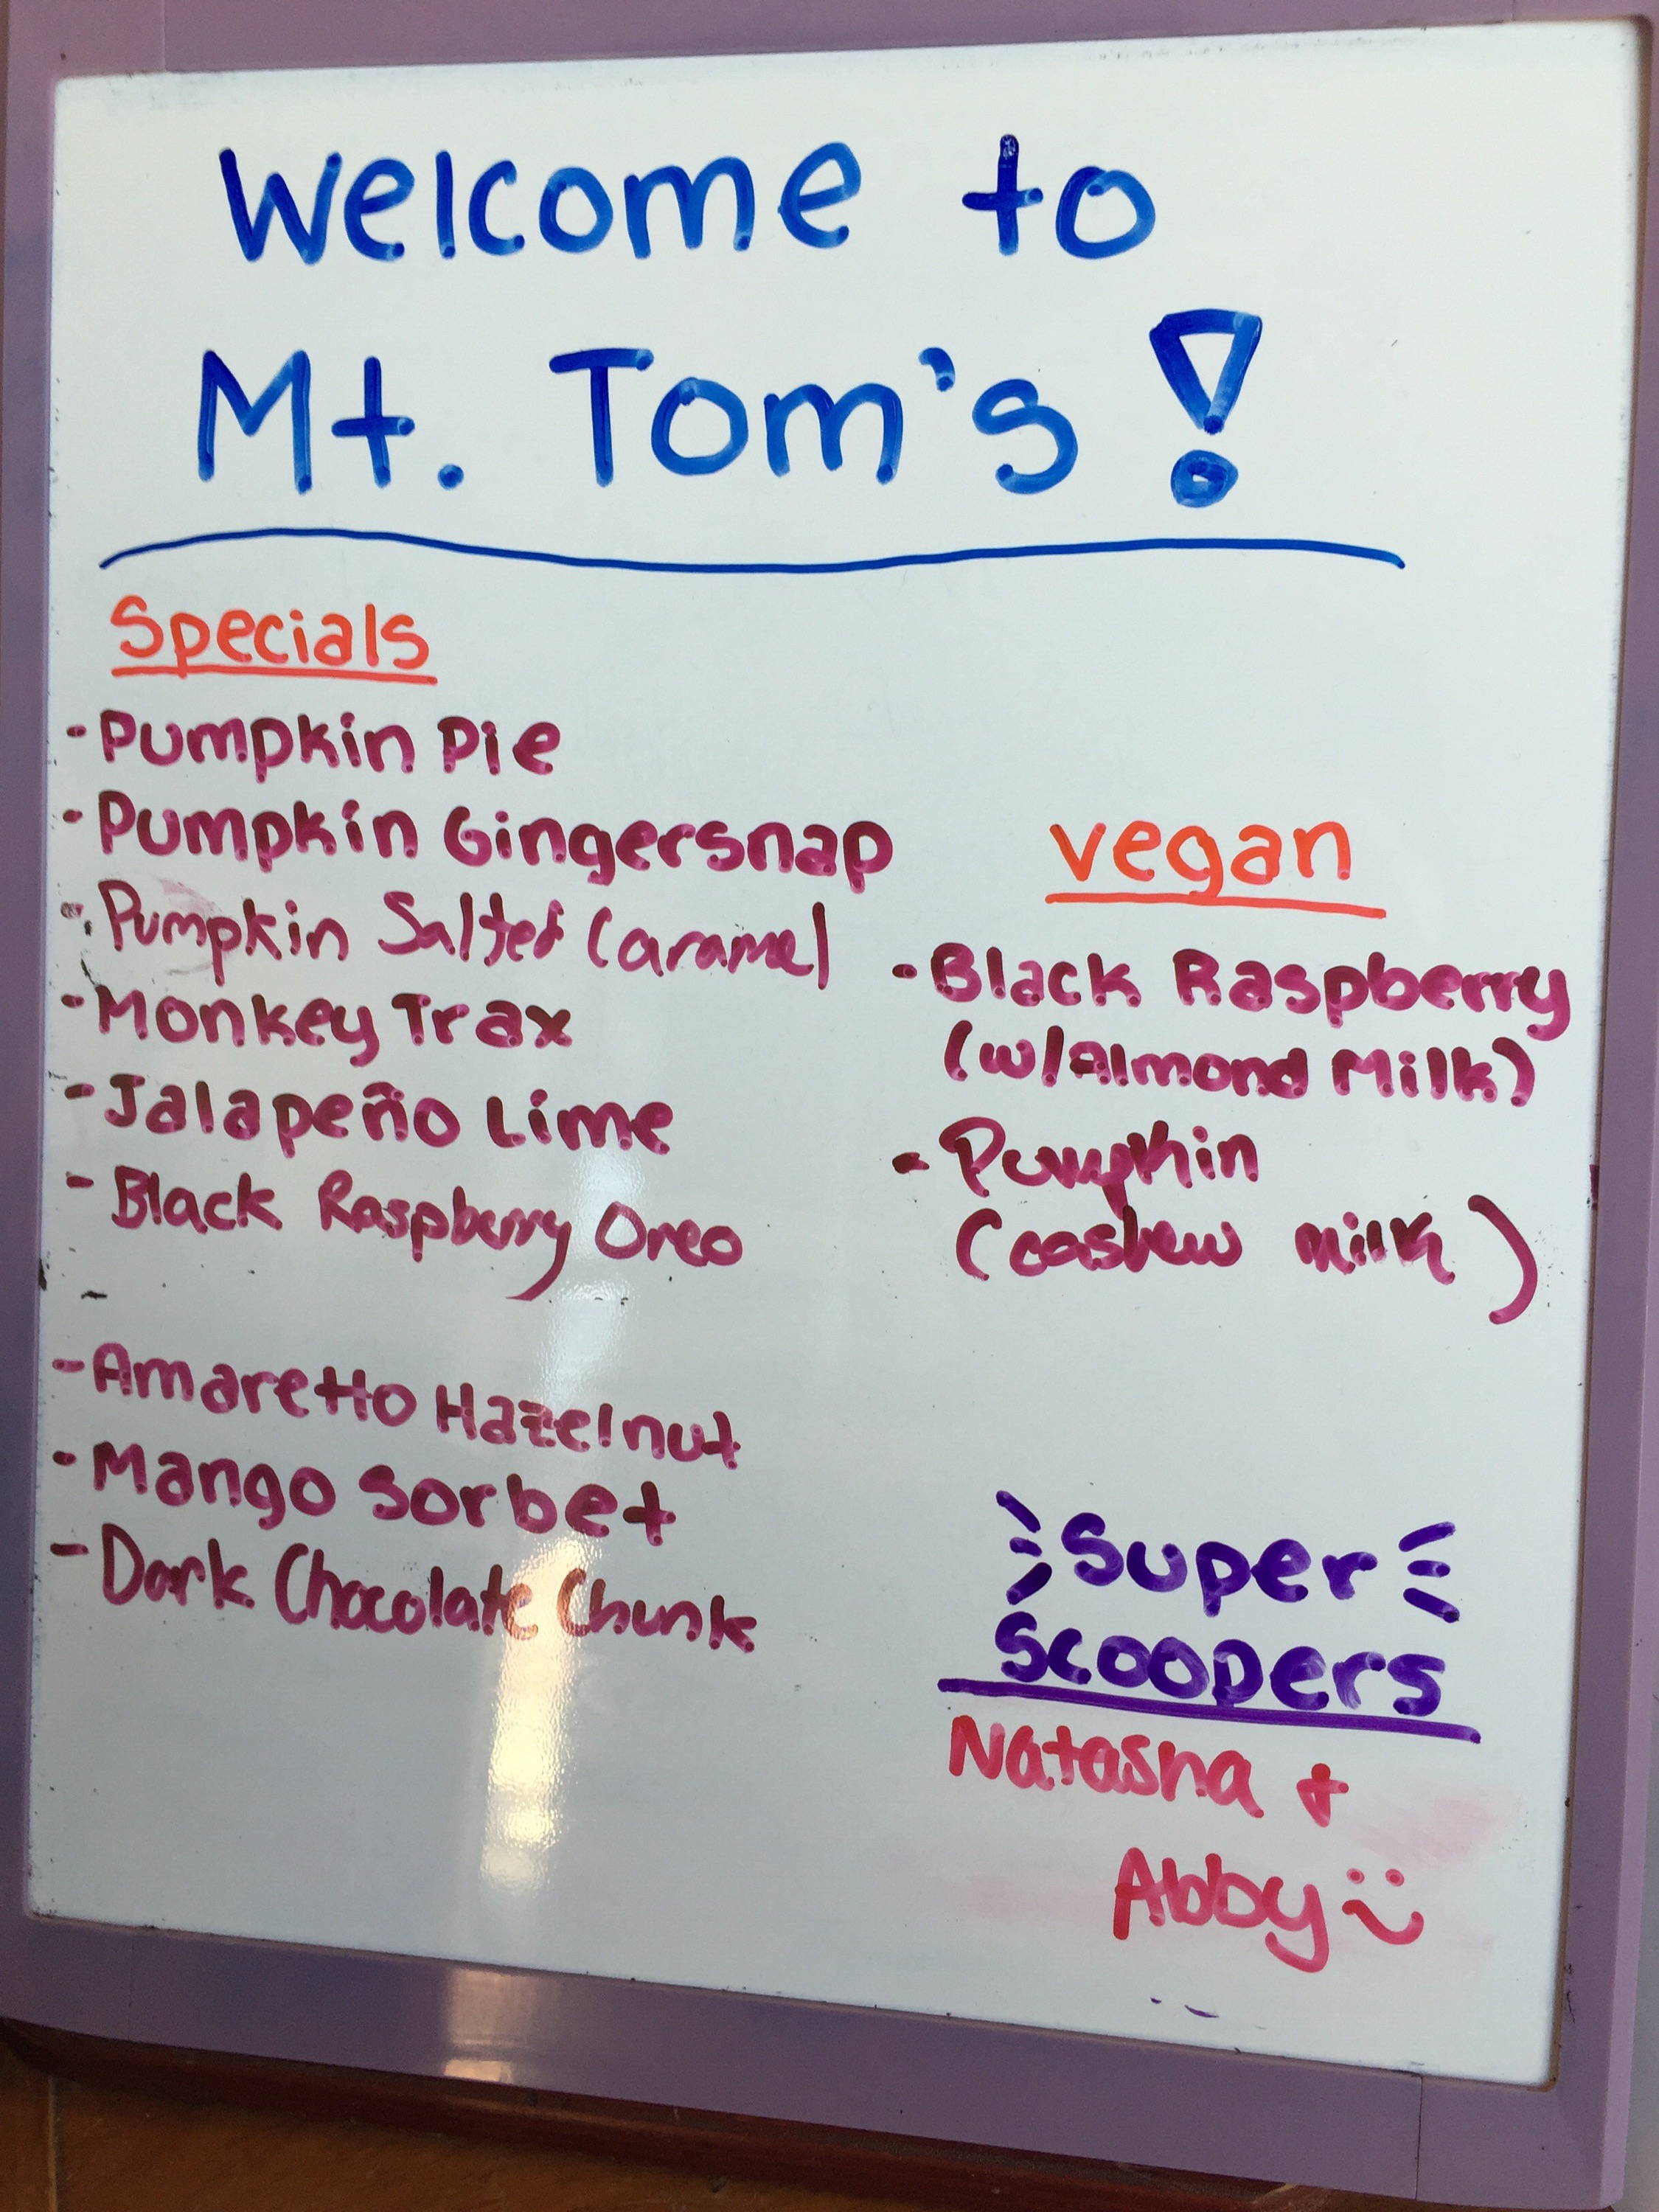 Welcome to
Mt. Tom's!
Specials
- Pumpkin Pie
- Pumpkin Gingersnap
- Pumpkin Salted Caramel
- Monkey Trax
- Jalapeño Lime
- Black Raspberry Oreo
- Amaretto Hazelnut
- Mango Sorbet
- Dark Chocolate Chunk
vegan
- Black Raspberry
(w/Almond Milk)
- Pumpkin
(cashew milk)
Super
Scoopers
Natasha +
Abby